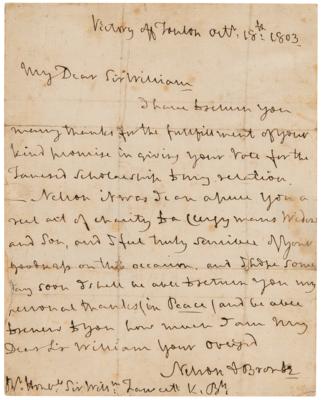 Victory off Toulon Octr. 18th. 1803
My Dear Sir William
I have to return you
many thanks for the fulfillment of your
kind promise in giving your Vote for the
Scholarship to my relation
Nelson it was I can assure you a
real act of charity to a Clergymans Widow
and Son, and I feel truly sensible of your
goodness on this occasion, and I hope some
day soon I shall be able to return you my
personal thanks (in Peace) and be able
to renew to you how much I am My
Dear Sir William your Oversized
Nelson & Bronte
Rt. Honble. Sir Willm. Fawcett K. Bth